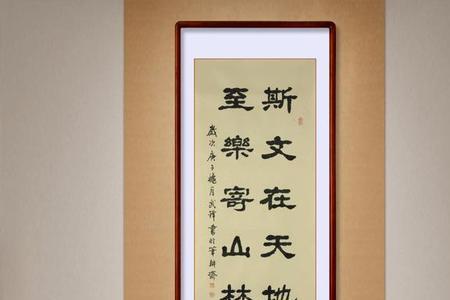 斯文在天地
至樂寄山林
歲次庚子穐月武鋒書於筆耕齋